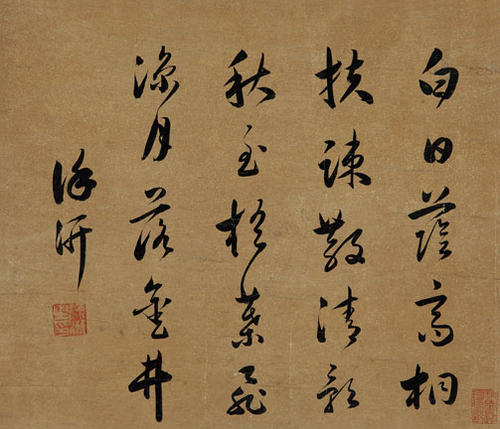 白日蔭高桐
扶踈散清影
秋至梧葉飛
涼月落金井
徐